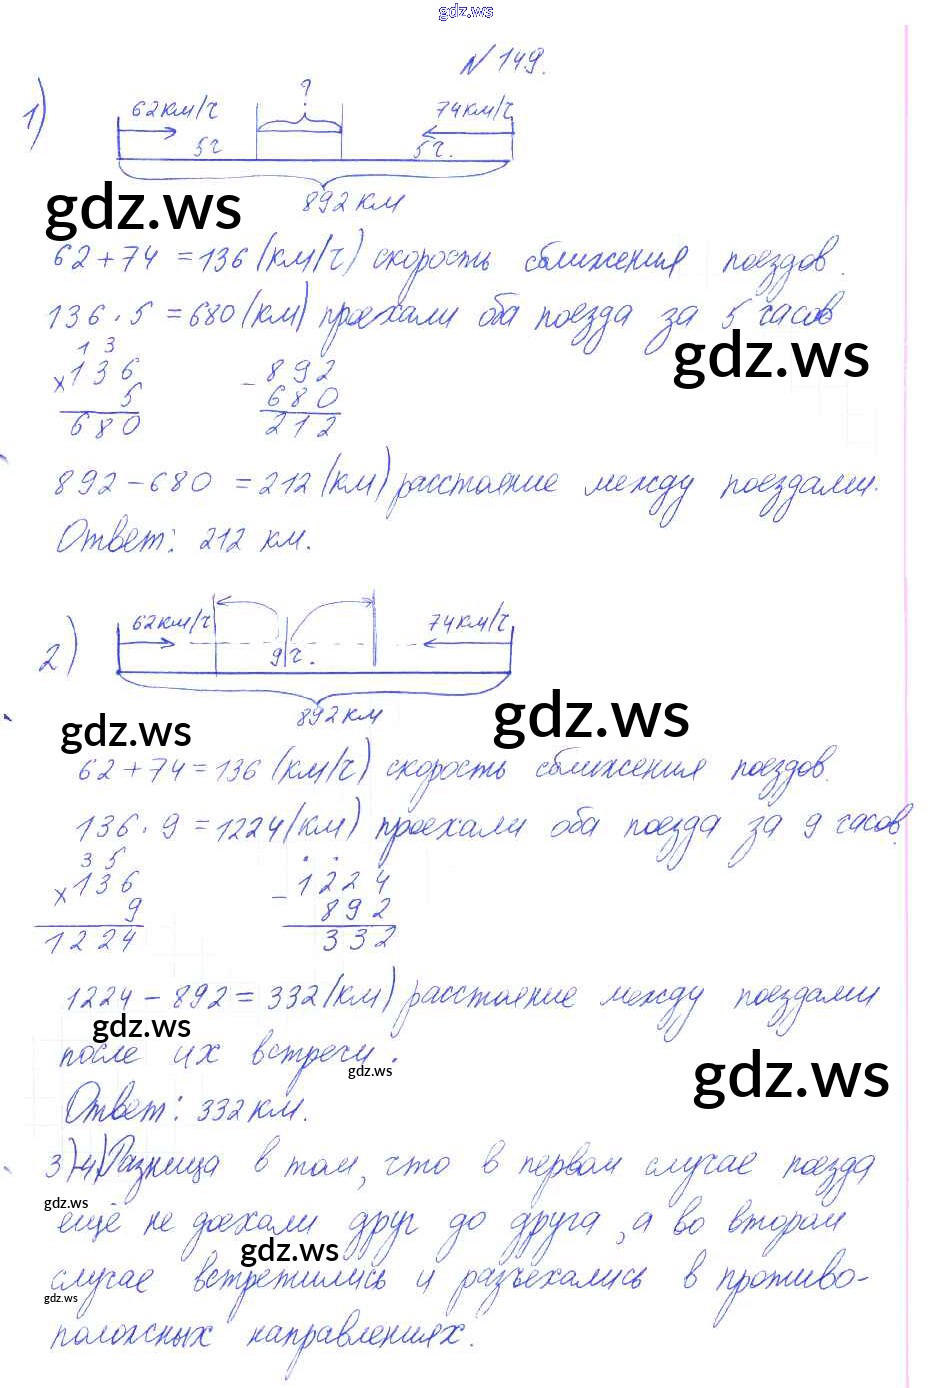 gdz.ws
N 149.
1)
?
62км/ч
74км/ч
5ч
5ч.
892 км
gdz.ws
62 + 74 = 136 (км/ч) скорость сближения поездов.
136 · 5 = 680 (км) проехали оба поезда за 5 часов
gdz.ws
1 3
× 136
5
680
- 892
680
212
892 - 680 = 212 (км) расстояние между поездами.
Ответ: 212 км.
2)
62км/ч
74км/ч
9ч.
892 км
gdz.ws
gdz.ws
62 + 74 = 136 (км/ч) скорость сближения поездов.
136 · 9 = 1224 (км) проехали оба поезда за 9 часов.
3 5
× 136
9
1224
- 1224
892
332
1224 - 892 = 332 (км) расстояние между поездами
gdz.ws
после их встречи.
gdz.ws
gdz.ws
Ответ: 332 км.
3)-4) Разница в том, что в первом случае поезда
gdz.ws
ещё не доехали друг до друга, а во втором
gdz.ws
случае встретились и разъехались в противо-
gdz.ws
положных направлениях.